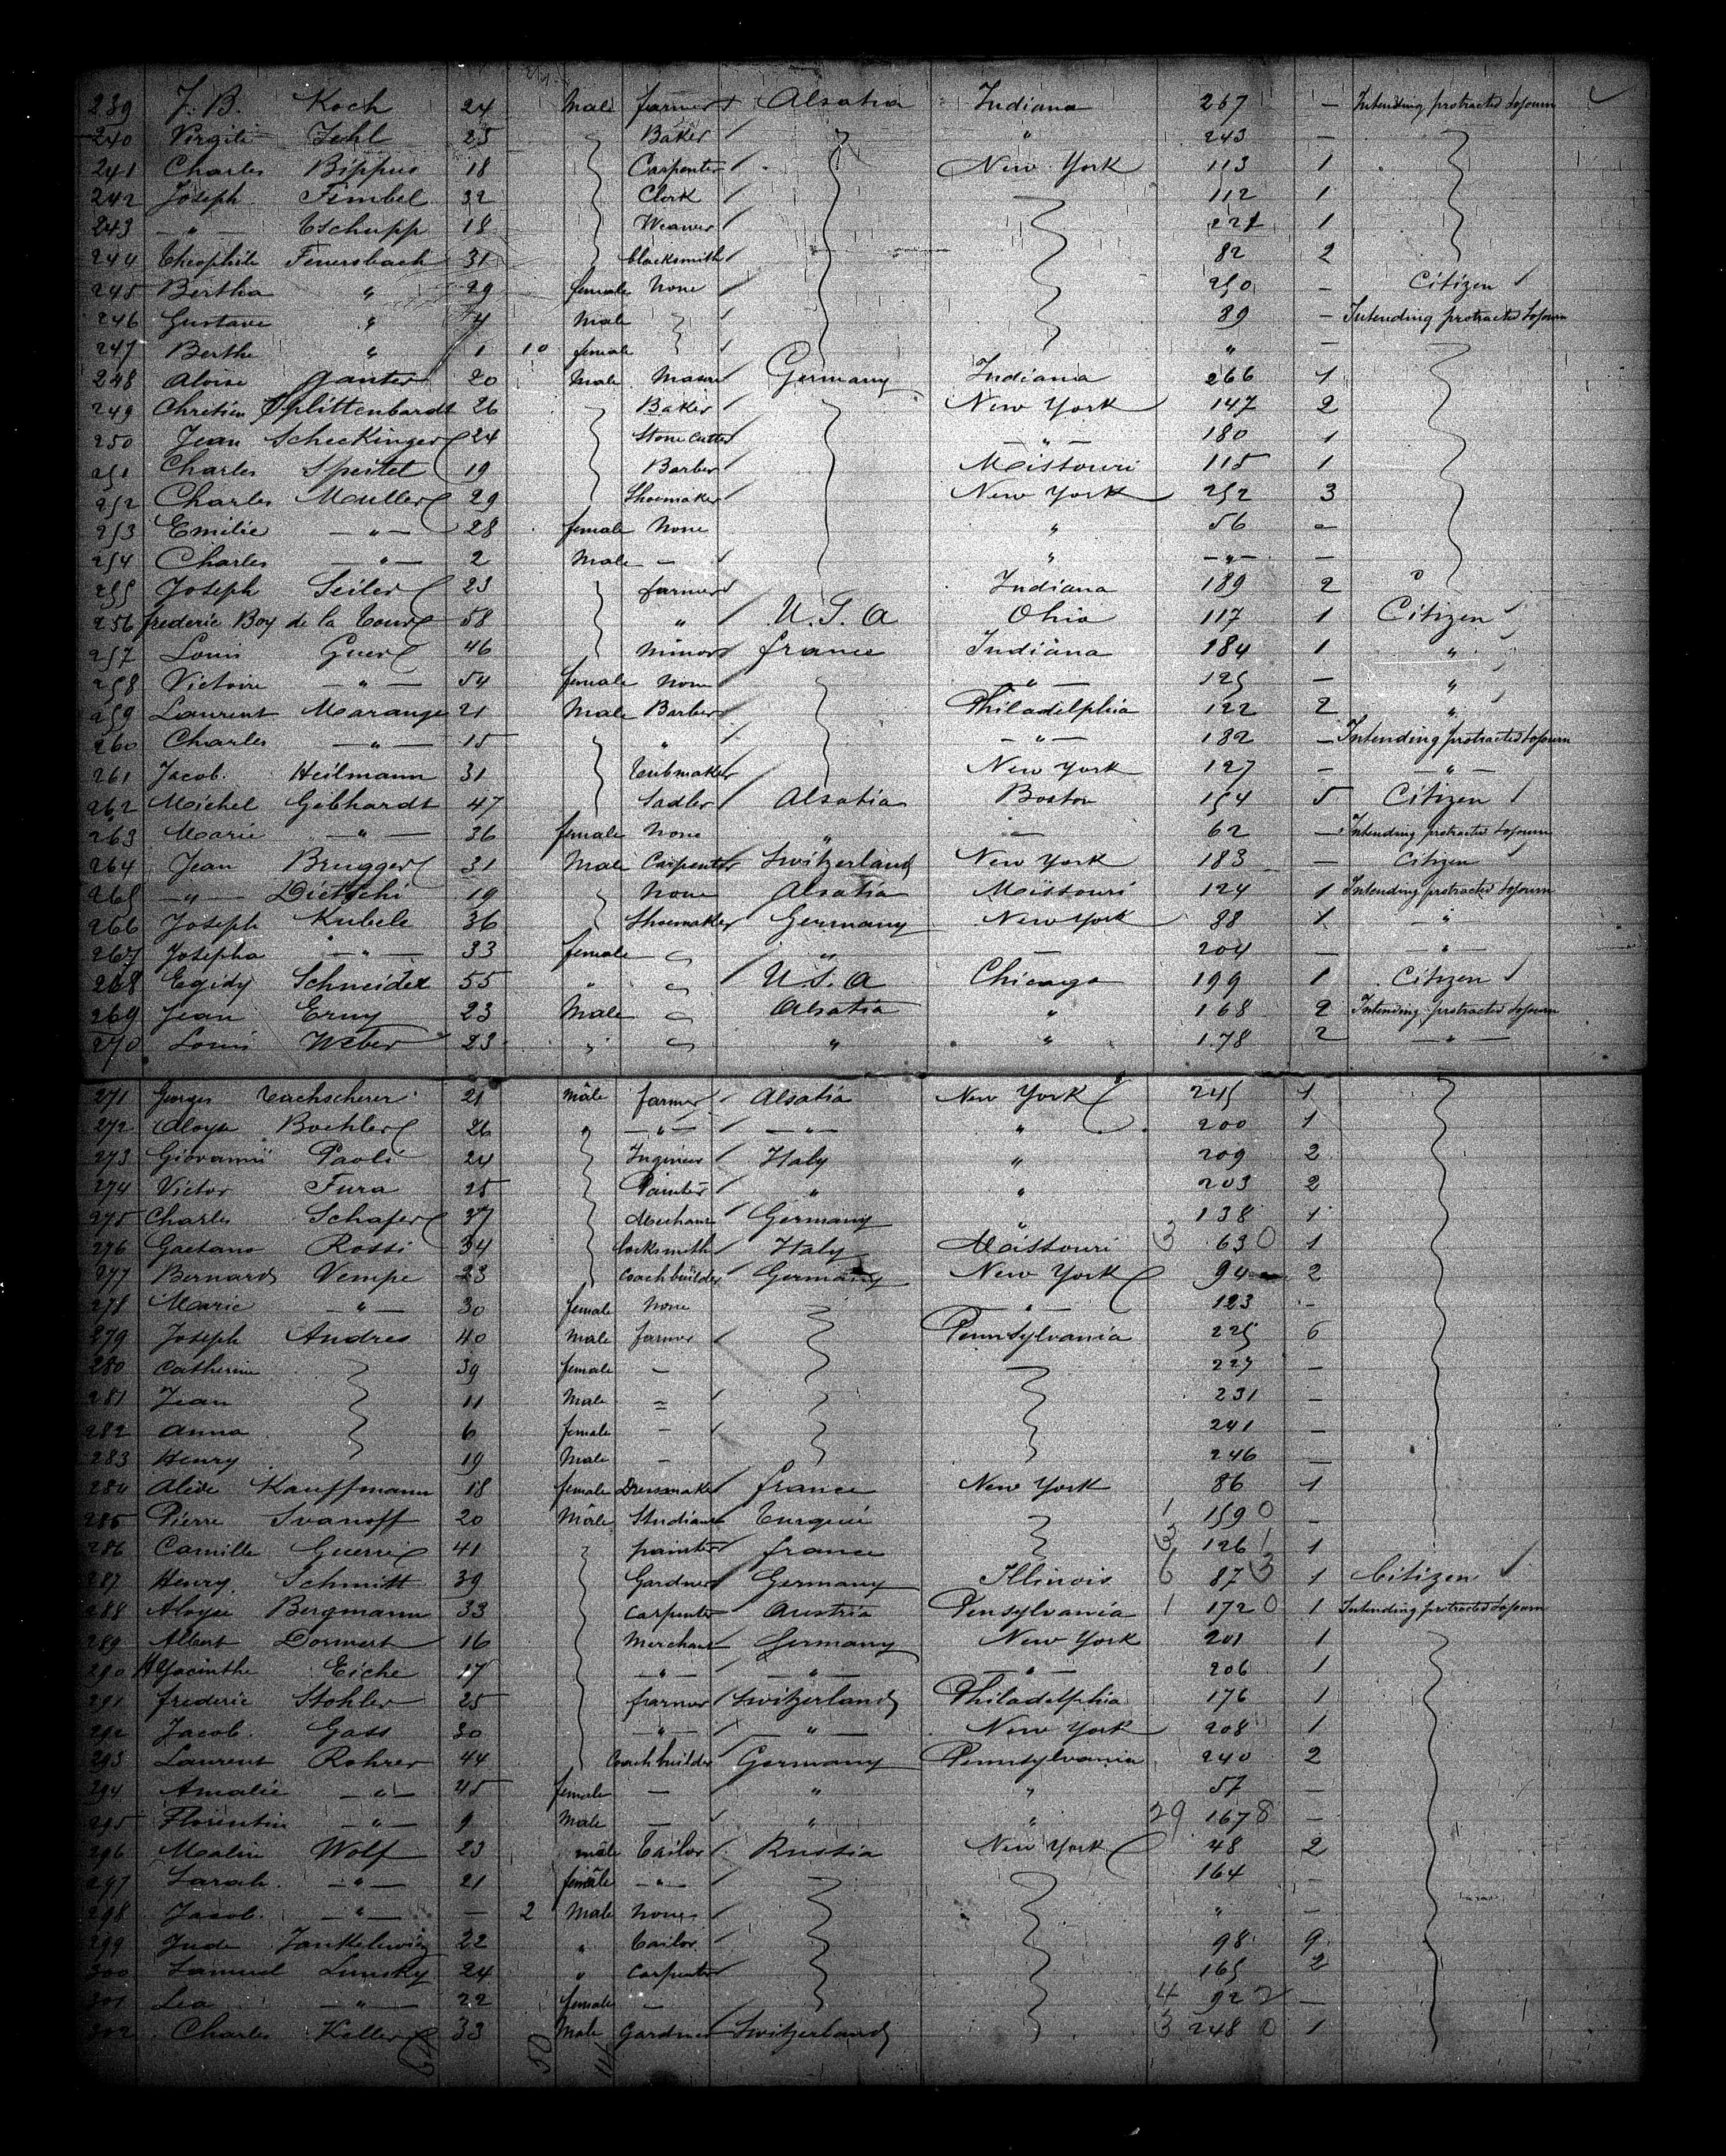 239 J. B. Koch 24 Male farmer Alsatia Indiana 267 — Intending protracted Sojourn
240 Virgili Jehl 25 Baker " 243 —
241 Charles Bippus 18 Carpenter New York 113 1
242 Joseph Fimbel 32 Clerk — 112 1
243 — " — Tschupp 18 Weaver 221 1
244 Theophile Feuersbach 31 blacksmith 82 2
245 Bertha " 29 female None 250 — Citizen
246 Gustave " 4 Male 89 — Intending protracted Sojourn
247 Berthe " 1 10 female " —
248 Aloise Ganter 20 Male Mason Germany Indiana 266 1
249 Chretien Splittenbardt 26 Baker New York 147 2
250 Jean Scheckinger 24 Stone Cutter — " — 180 1
251 Charles Speitel 19 Barber Missouri 115 1
252 Charles Muller 29 Shoemaker New York 252 3
253 Emilie — " — 28 female None " 56 —
254 Charles — " — 2 Male — " — " — —
255 Joseph Seiler 23 farmer Indiana 189 2
256 frederic Boy de la Tour 58 " U.S.A Ohio 117 1 Citizen
257 Louis Guer 46 Minor france Indiana 184 1 "
258 Victoire — " — 54 female None — " — 125 — "
259 Laurent Marange 21 Male Barber Philadelphia 122 2 "
260 Charles — " — 15 " — " — 182 — Intending protracted Sojourn
261 Jacob Heilmann 31 Tubmaker New York 127 — — " —
262 Michel Gebhardt 47 Sadler Alsatia Boston 154 5 Citizen
263 Marie — " — 36 female None " — 62 — Intending protracted Sojourn
264 Jean Brugger 31 Male Carpenter Switzerland New York 183 — Citizen
265 — " — Dietschi 19 None Alsatia Missouri 124 1 Intending protracted Sojourn
266 Joseph Kubele 36 Shoemaker Germany New York 88 1 — " —
267 Josepha — " — 33 female " — 204 — — " —
268 Egidy Schneider 55 " U.S.A Chicago 199 1 Citizen
269 Jean Erny 23 Male Alsatia " 168 2 Intending protracted Sojourn
270 Louis Weber 23 " " " 178 2 — " —
271 Georges Tachscherer 21 male farmer Alsatia New York 245 1
272 Aloyse Boehler 26 " — " — — " — " 200 1
273 Giovanni Paoli 24 Ingenieur Italy " 209 2
274 Victor Fura 25 Painter " " 203 2
275 Charles Schafer 37 Merchant Germany " 138 1
276 Gaetano Rossi 34 locksmith Italy Missouri 3 63 0 1
277 Bernard Vempe 23 Coachbuilder Germany New York 94 2
278 Marie — " — 30 female None — " — 123 —
279 Joseph Andres 40 Male farmer Pennsylvania 225 6
280 Catherine 39 female — 227 —
281 Jean 11 Male 231 —
282 Anna 6 female — 241 —
283 Henry 19 Male — 246 —
284 Kauffmann 18 female Dressmaker france New York 86 1
285 Pierre Ivanoff 20 Male Studiant Turquie 1 159 0 —
286 Camille Guerre 41 painter france 3 126 1 1
287 Henry Schmitt 39 Gardner Germany Illinois 6 87 3 1 Citizen
288 Aloyse Bergmann 33 Carpenter Austria Pensylvania 1 172 0 1 Intending protracted Sojourn
289 Albert Dormert 16 Merchant Germany New York 201 1
290 Hyacinthe Eiche 17 — " — — " — — " — 206 1
291 frederic Stohler 25 farmer Switzerland Philadelphia 176 1
292 Jacob Gass 30 — " — — " — New York 208 1
293 Laurent Rohrer 44 Coachbuilder Germany Pennsylvania 240 2
294 Amalie — " — 45 female — " " 57 —
295 Florentin — " — 9 Male — " " 29 167 8 —
296 Wolf 23 male Tailor Russia New York 48 2
297 Sarah — " — 21 female — " — 164 —
298 Jacob — " — — 2 Male None " —
299 Jude Jankelewig 22 " Tailor 98 9
300 Samuel Linsky 24 " Carpenter 165 2
301 Lea — " — 22 female — 4 92 2 —
302 Charles Keller 33 Male Gardner Switzerland 3 248 0 1
50